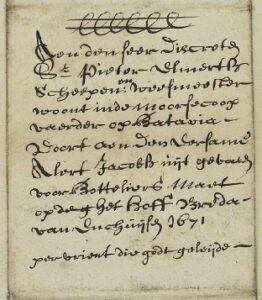 Aen den seer discreten
Sr Pieter Elmerts
Schepen en Weesmeester
woont inde moersecoop
vaerder op Batavia
Voort aen den Eersame
Alert Jacobss uijt gevaren
voor Botteliers Maet
op de g het Hoff Breda
van Enchuijsen 1671
per vrient die godt geleijde